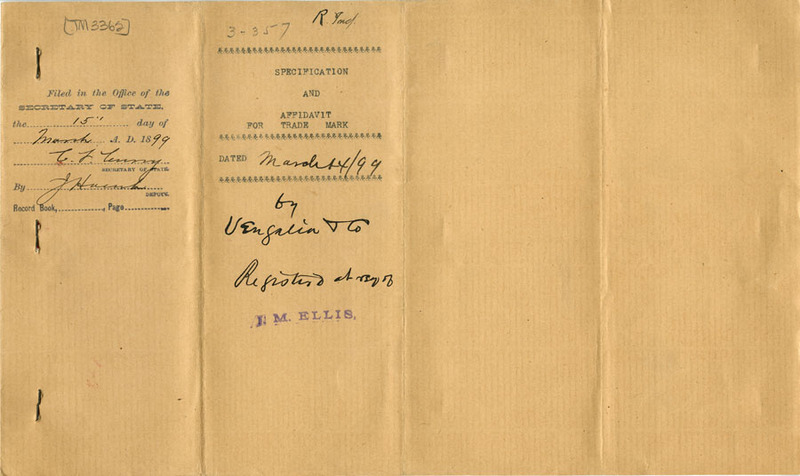 [TM3362]
Filed in the Office of the
SECRETARY OF STATE,
the 15" day of
March A. D. 1899
C F Curry
SECRETARY OF STATE.
By J Hoesch
DEPUTY.
Record Book, , Page
3-357
SPECIFICATION
AND
AFFIDAVIT
FOR TRADE MARK
DATED March 14/99
by
Vengalia & Co
Registered at req of
M. ELLIS,